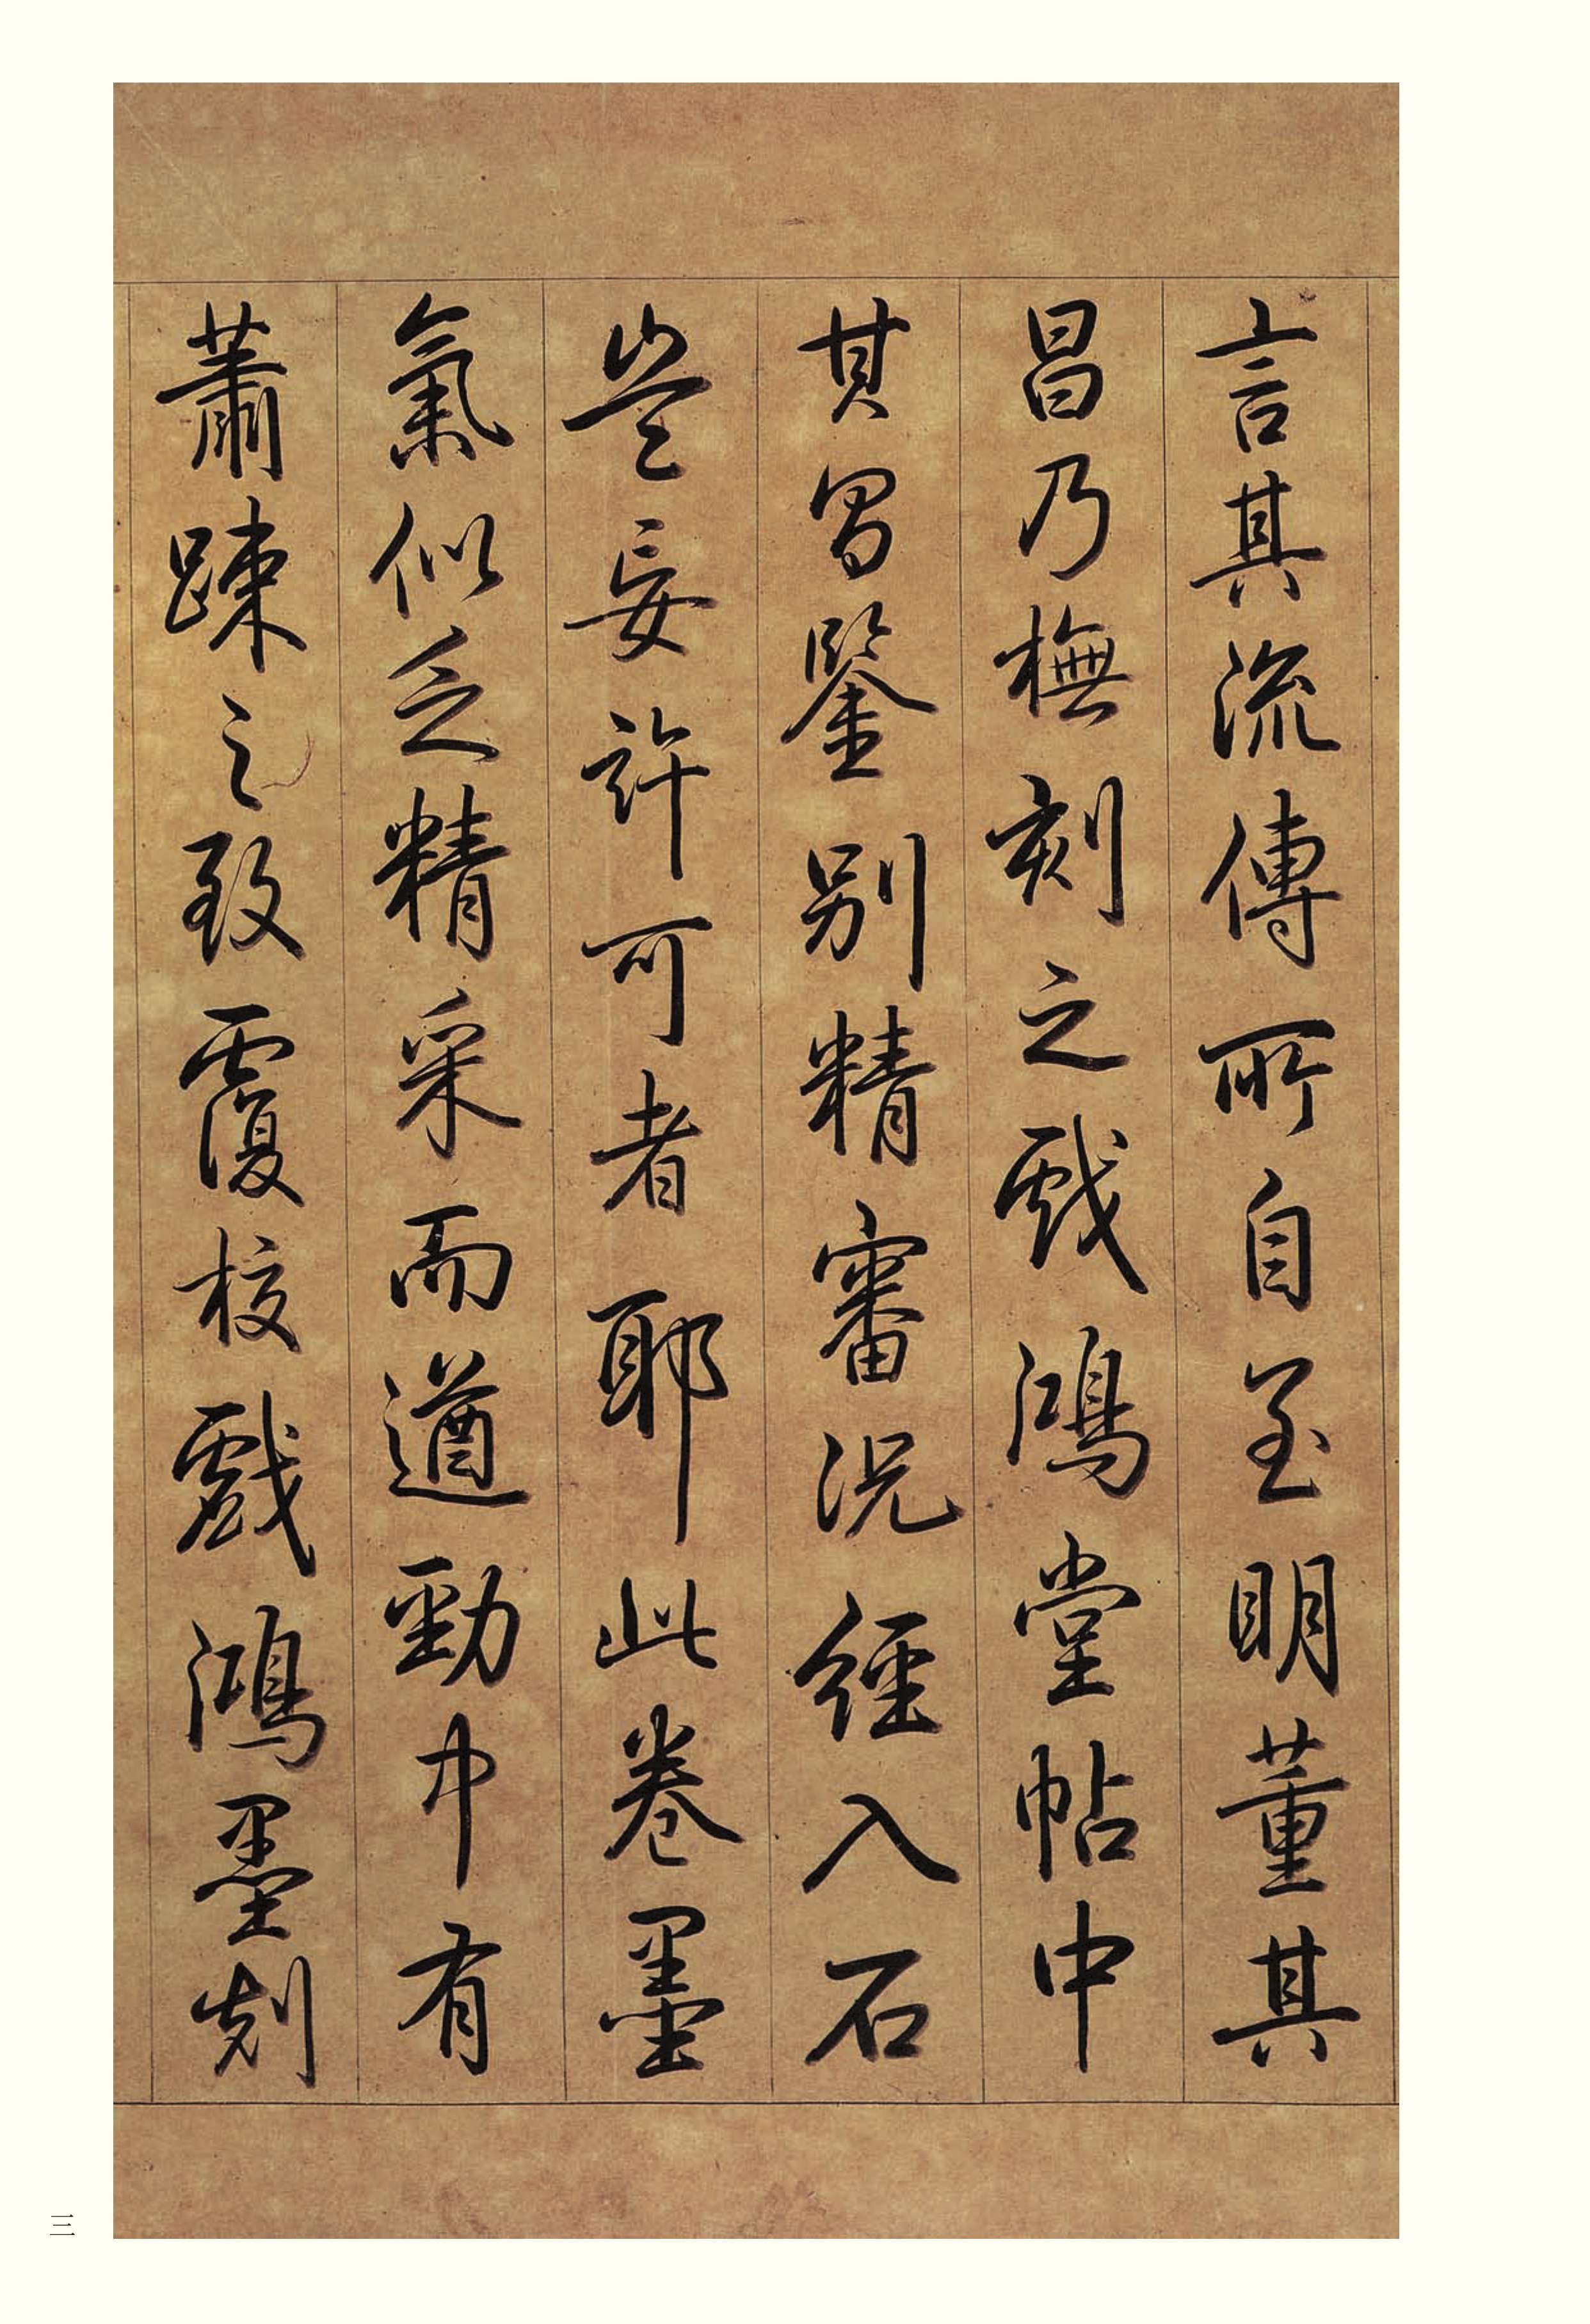 言其流傳所自至明董其
昌乃橅刻之戲鴻堂帖中
其昌鑒別精審況經入石
豈妄許可者耶此卷墨
氣似乏精采而遒勁中有
蕭踈之致覆校戲鴻墨刻
三